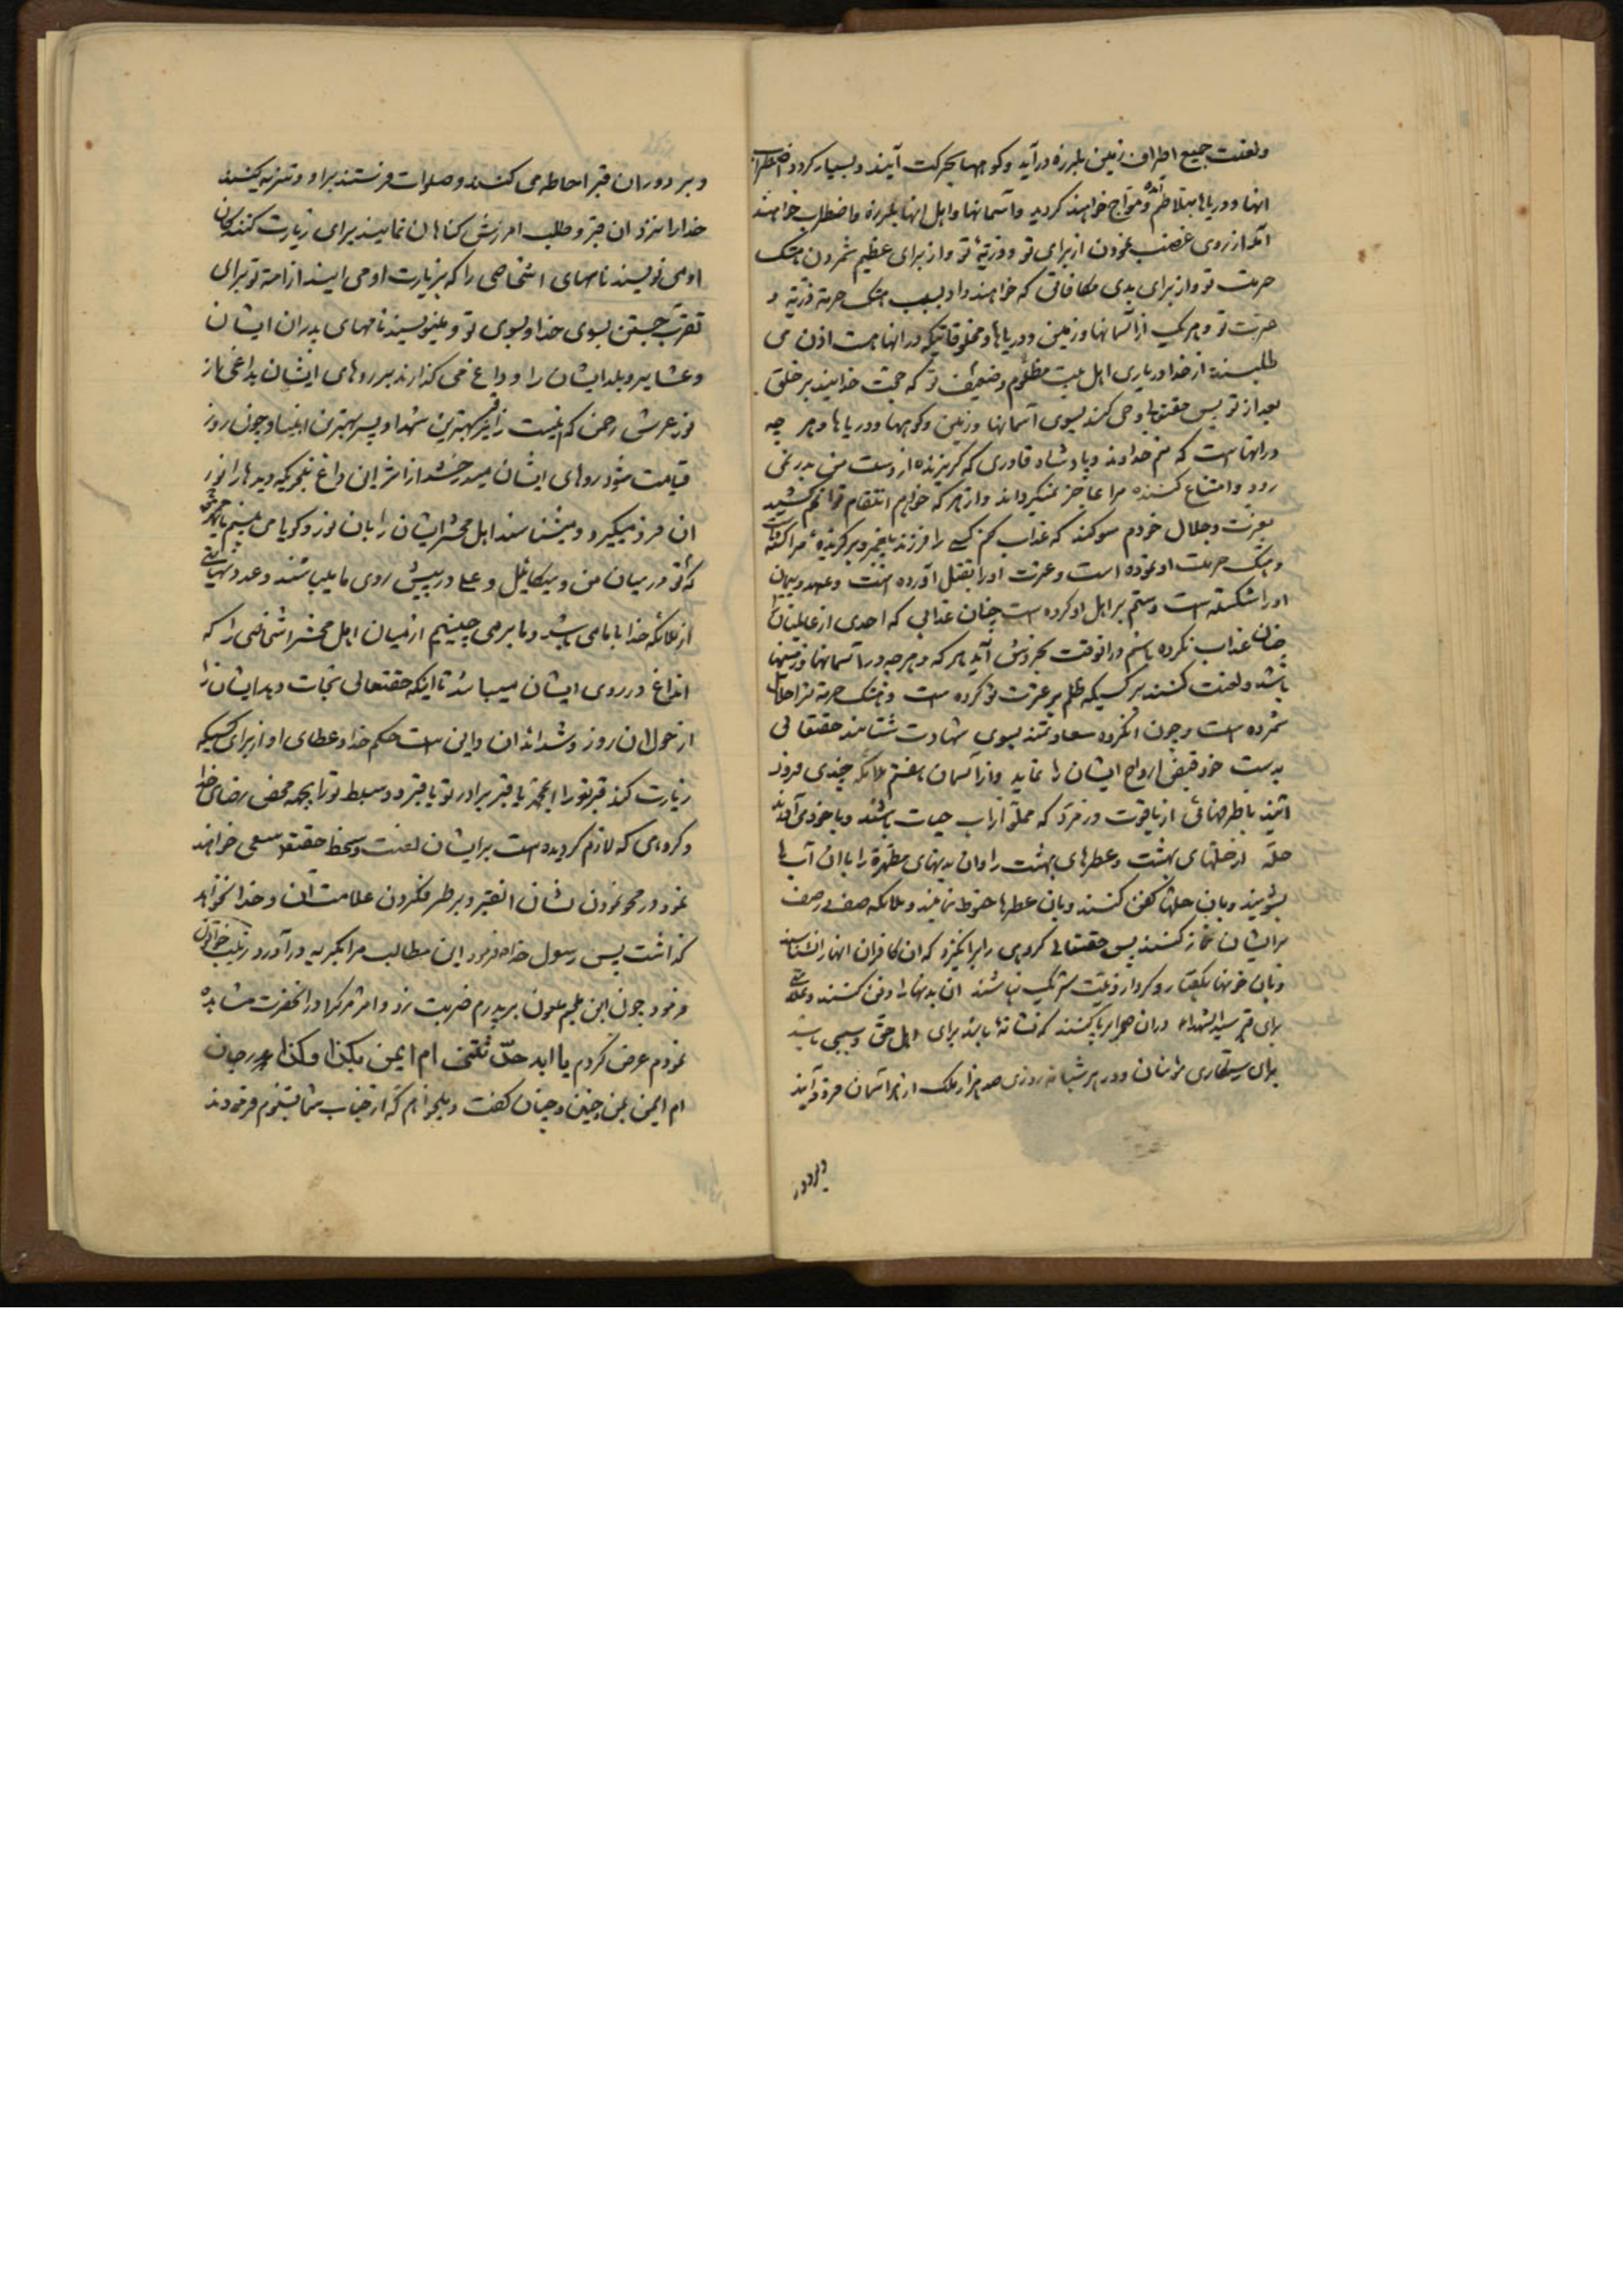 ولعنت جمیع اطراف زمین بلرزه درآید وکوهها بحرکت آیند وبسیار کردد اضطراب
انها ودریاها بتلاطم ومواج خواهند کردید وآسمانها واهل انها بلرزه واضطراب خواهند
آمد از روی غضب نمودن از برای تو وذریهٔ تو واز برای عظیم شمردن هتک
حرمت تو واز برای بدی مکافاتی که خواهند داد بسبب هتک حرمة ذریة و
عترت تو وهر یک از آسمانها وزمین ودریاها ومخلوقاتیکه در انها هست اذن می
طلبند از خدا در یاری اهل بیت مظلوم وضعیف تو که حجت خدایند بر خلق
بعد از تو پس حقتعالی وحی کند بسوی آسمانها وزمین وکوهها ودریاها وهر چه
در انها است که منم خداوند وپادشاه قادری که کریزنده از دست من بدر نمی
رود وامتناع کننده مرا عاجز نمیکرداند واز هر که خواهم انتقام توانم کشید
بعزت وجلال خودم سوکند که عذاب کنم کسی را فرزند پیغمبر وبرکزیدهٔ مرا کشته
وهتک حرمت او نموده است وعترت او را بقتل آورده است وعهد وپیمان
او را شکسته است وستم بر اهل او کرده است چنان عذابی که احدی از عالمیان را
چنان عذاب نکرده باشم در انوقت بخروش آید هر که وهر چه در آسمانها وزمینها
باشد ولعنت کنند بر کسیکه ظلم بر عترت تو کرده است وهتک حرمة ترا حلال
شمرده است وچون انکروه سعادتمند بسوی شهادت شتابند حقتعالی
بدست خود قبض ارواح ایشان را نماید واز آسمان هفتم ملائکه چندی فرود
آیند با ظرفهائی از یاقوت وزمرد که مملو از آب حیات باشند وبا خود می آورند
حله از حلهای بهشت وعطرهای بهشت را وان بدنهای مطهرة را با ان آب ها
بشویند وبان حلها کفن کنند وبان عطرها حنوط نمایند وملائکه صف در صف
بر ایشان نماز کنند پس حقتعالی کروهی را برانکیزد که ان کافران انها را نشناسند
وبان خونها بکفتار وکردار ونیت شریک نباشند ان بدنها را دفن کنند وعلامتی
برای قبر سید الشهداء در ان صحرا برپا کنند که نشانهٔ باشد برای اهل حق وسببی باشد
برای رستکاری مؤمنان ودر هر شبانه روزی صد هزار ملک از هر آسمان فرود آیند
وبر دور
وبر دوران قبر احاطه می کنند وصلوات فرستند بر او وتنزیه کنند
خدا را نزد ان قبر وطلب امرزش کناهان نمایند برای زیارت کنندکان
او می نویسند نامهای اشخاصی را که بزیارت او می ایند از امة تو برای
تقرب جستن بسوی خدا وبسوی تو ومینویسند نامهای پدران ایشان
وعشایر وبلد ایشان را وداغ می کذارند بر روهای ایشان بداغی از
نور عرش رحمن که اینست زایر قبر بهترین شهدا وپسر بهترین انبیا وچون روز
قیامت شود روهای ایشان میدرخشد از اثر ان داغ بنحریکه دیدها را نور
ان فرو میکیرد ومیشناسند اهل محشر ایشان را بان نور وکویا می بینم یا محمد
که تو در میان من ومیکائیل وعلی در پیش روی ما میباشند وعدد بی نهایتی
از ملائکه خدا با ما می باشد وما بر می چینیم از میان اهل محشر اشخاصی را که
انداغ در روی ایشان میباشد تا اینکه حقتعالی نجات دهد ایشان را
از هول ان روز وشداید ان واین است حکم خدا وعطای او از برای کسیکه
زیارت کند قبر تو را ایمحمد یا قبر برادر تو یا قبر دو سبط تو را بجهة محض رضای خدا
وکروهی که لازم کردیده است بر ایشان لعنت وسخط حقتعالی سعی خواهند
نمود در محو نمودن نشان انقبر وبرطرف کردن علامت آن وخدا نخواهد
کذاشت پس رسول خدا فرمود این مطالب مرا بکریه در آورد زینب خواتون
فرمود چون ابن ملجم ملعون بر پدرم ضربت زد واثر مرک را در انحضرت مشاهده
نمودم عرض کردم یا ابه حدثتنی ام ایمن بکذا وکذا پدرجان
ام ایمن بمن چنین وچنان کفت ومیخواهم که از جناب شما بشنوم فرمودند